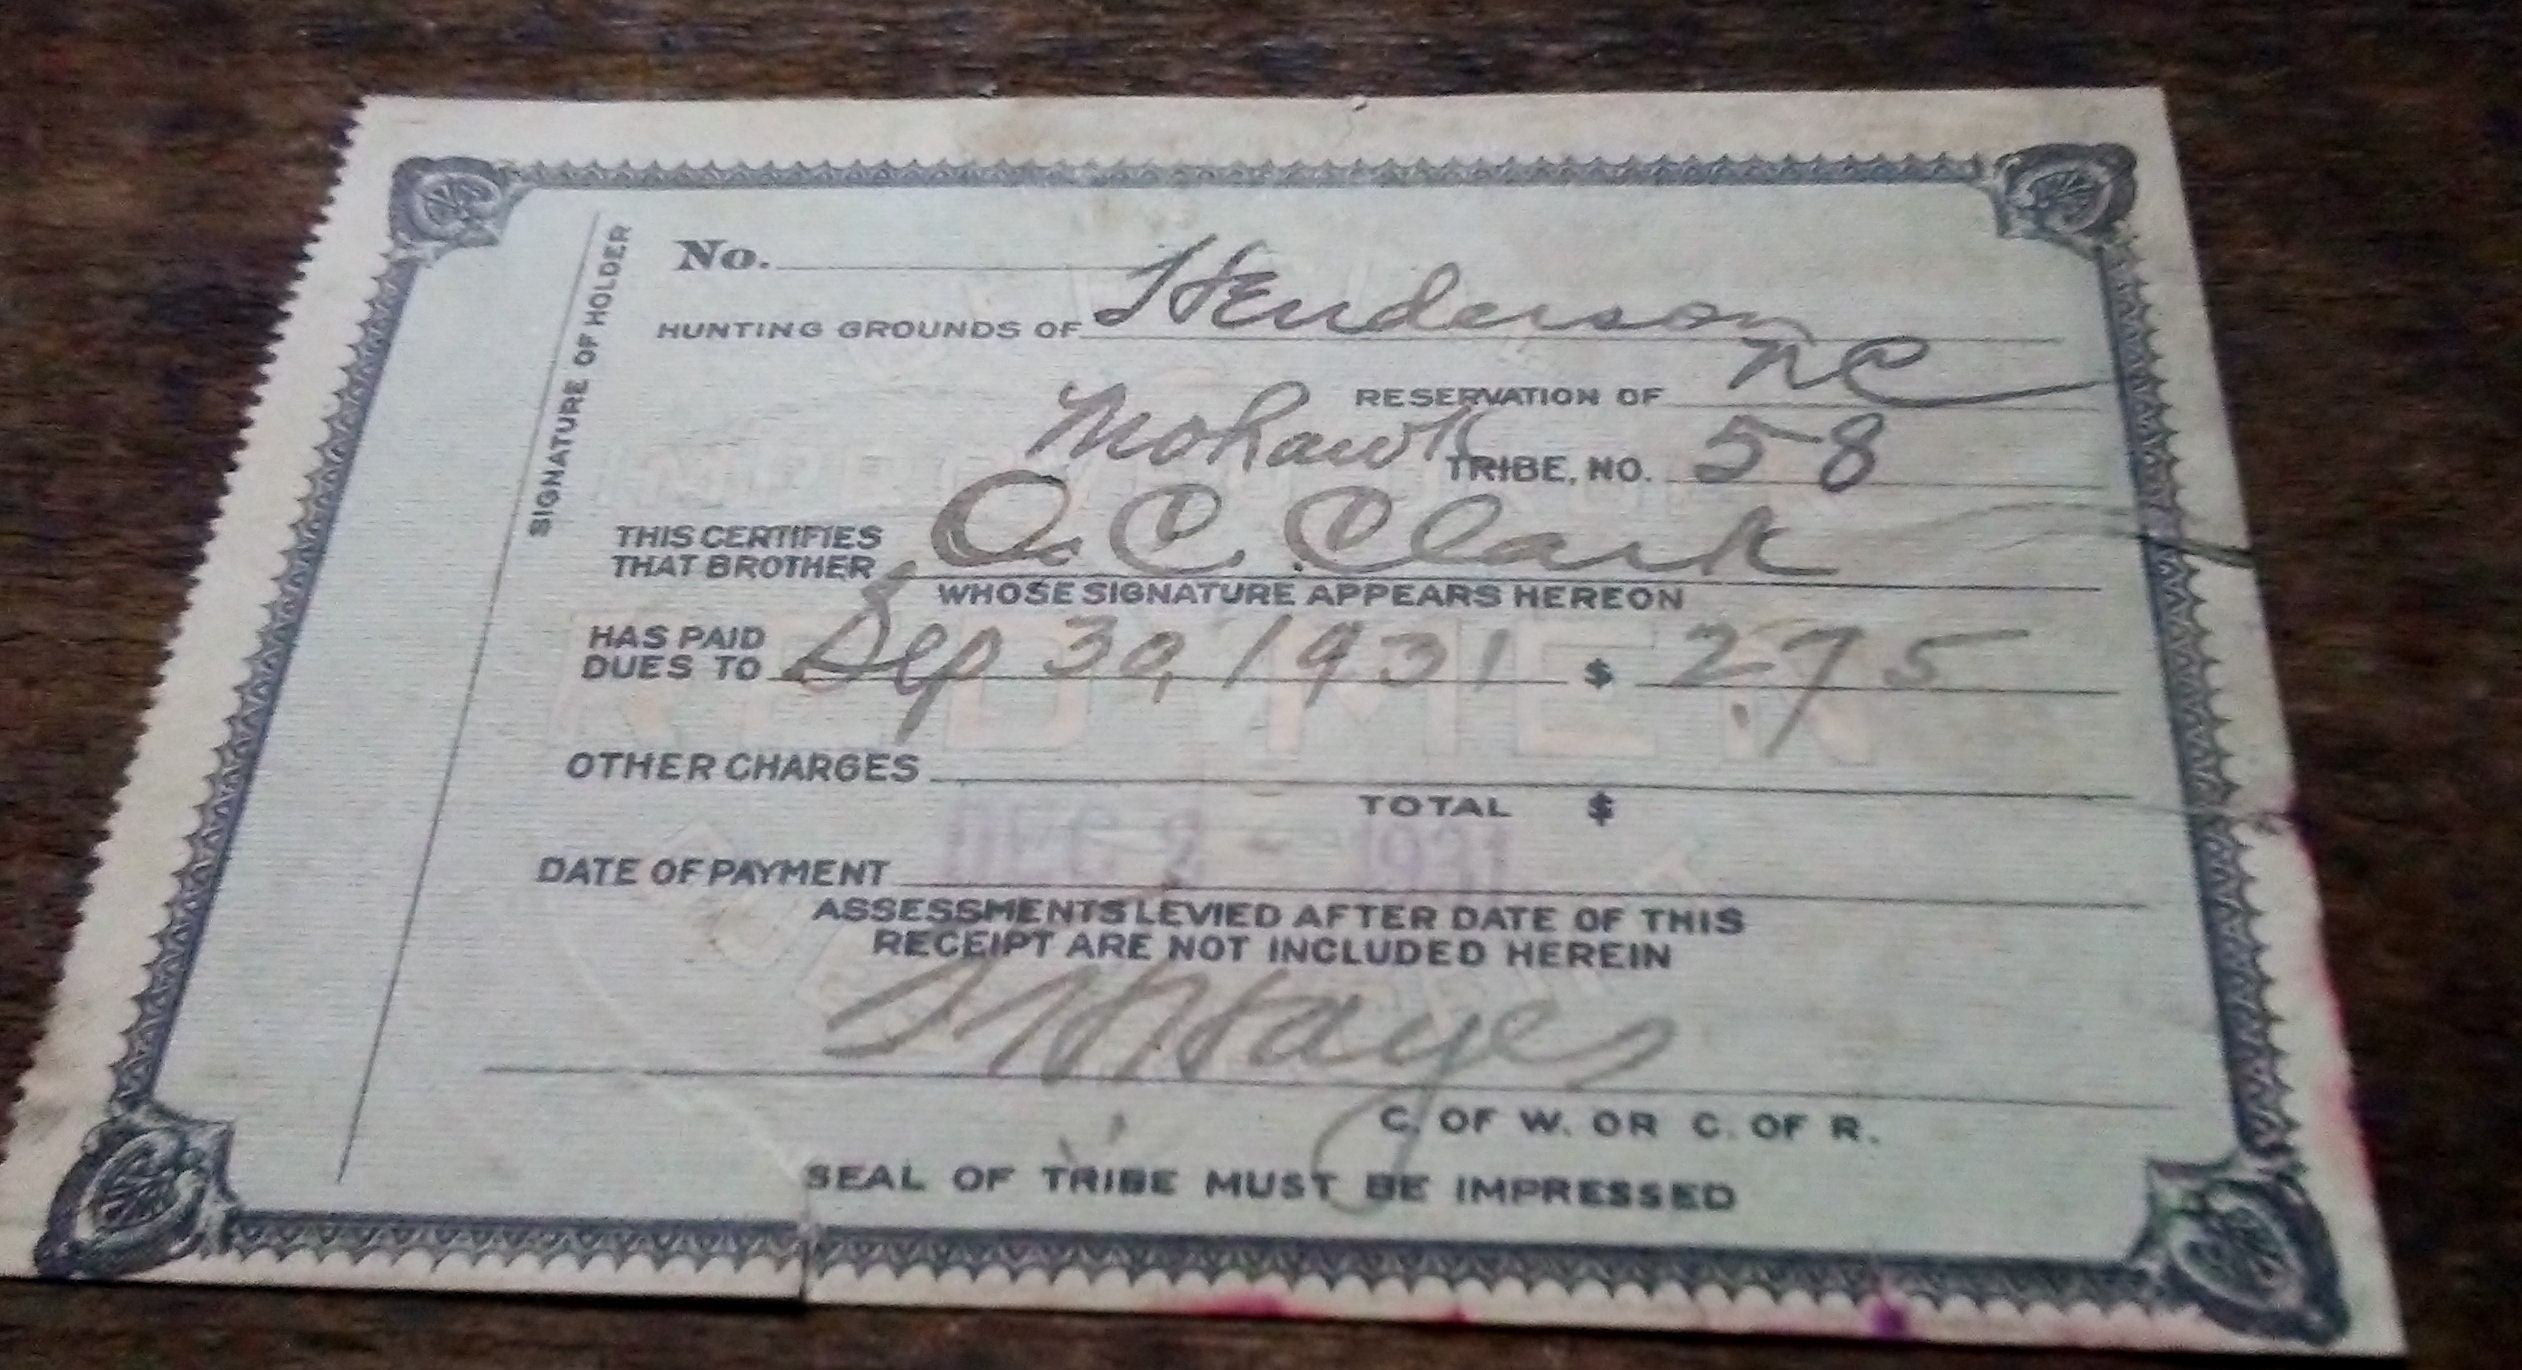 SIGNATURE OF HOLDER
No.
HUNTING GROUNDS OF Henderson
RESERVATION OF NC
Mohawk TRIBE, NO. 58
THIS CERTIFIES
THAT BROTHER O. C. Clark
WHOSE SIGNATURE APPEARS HEREON
HAS PAID
DUES TO Sep 30, 1931 $ 2.75
OTHER CHARGES
TOTAL $
DATE OF PAYMENT DEC 2 - 1931
ASSESSMENTS LEVIED AFTER DATE OF THIS
RECEIPT ARE NOT INCLUDED HEREIN
Hayes
C. OF W. OR C. OF R.
SEAL OF TRIBE MUST BE IMPRESSED
IMPROVED ORDER
RED MEN